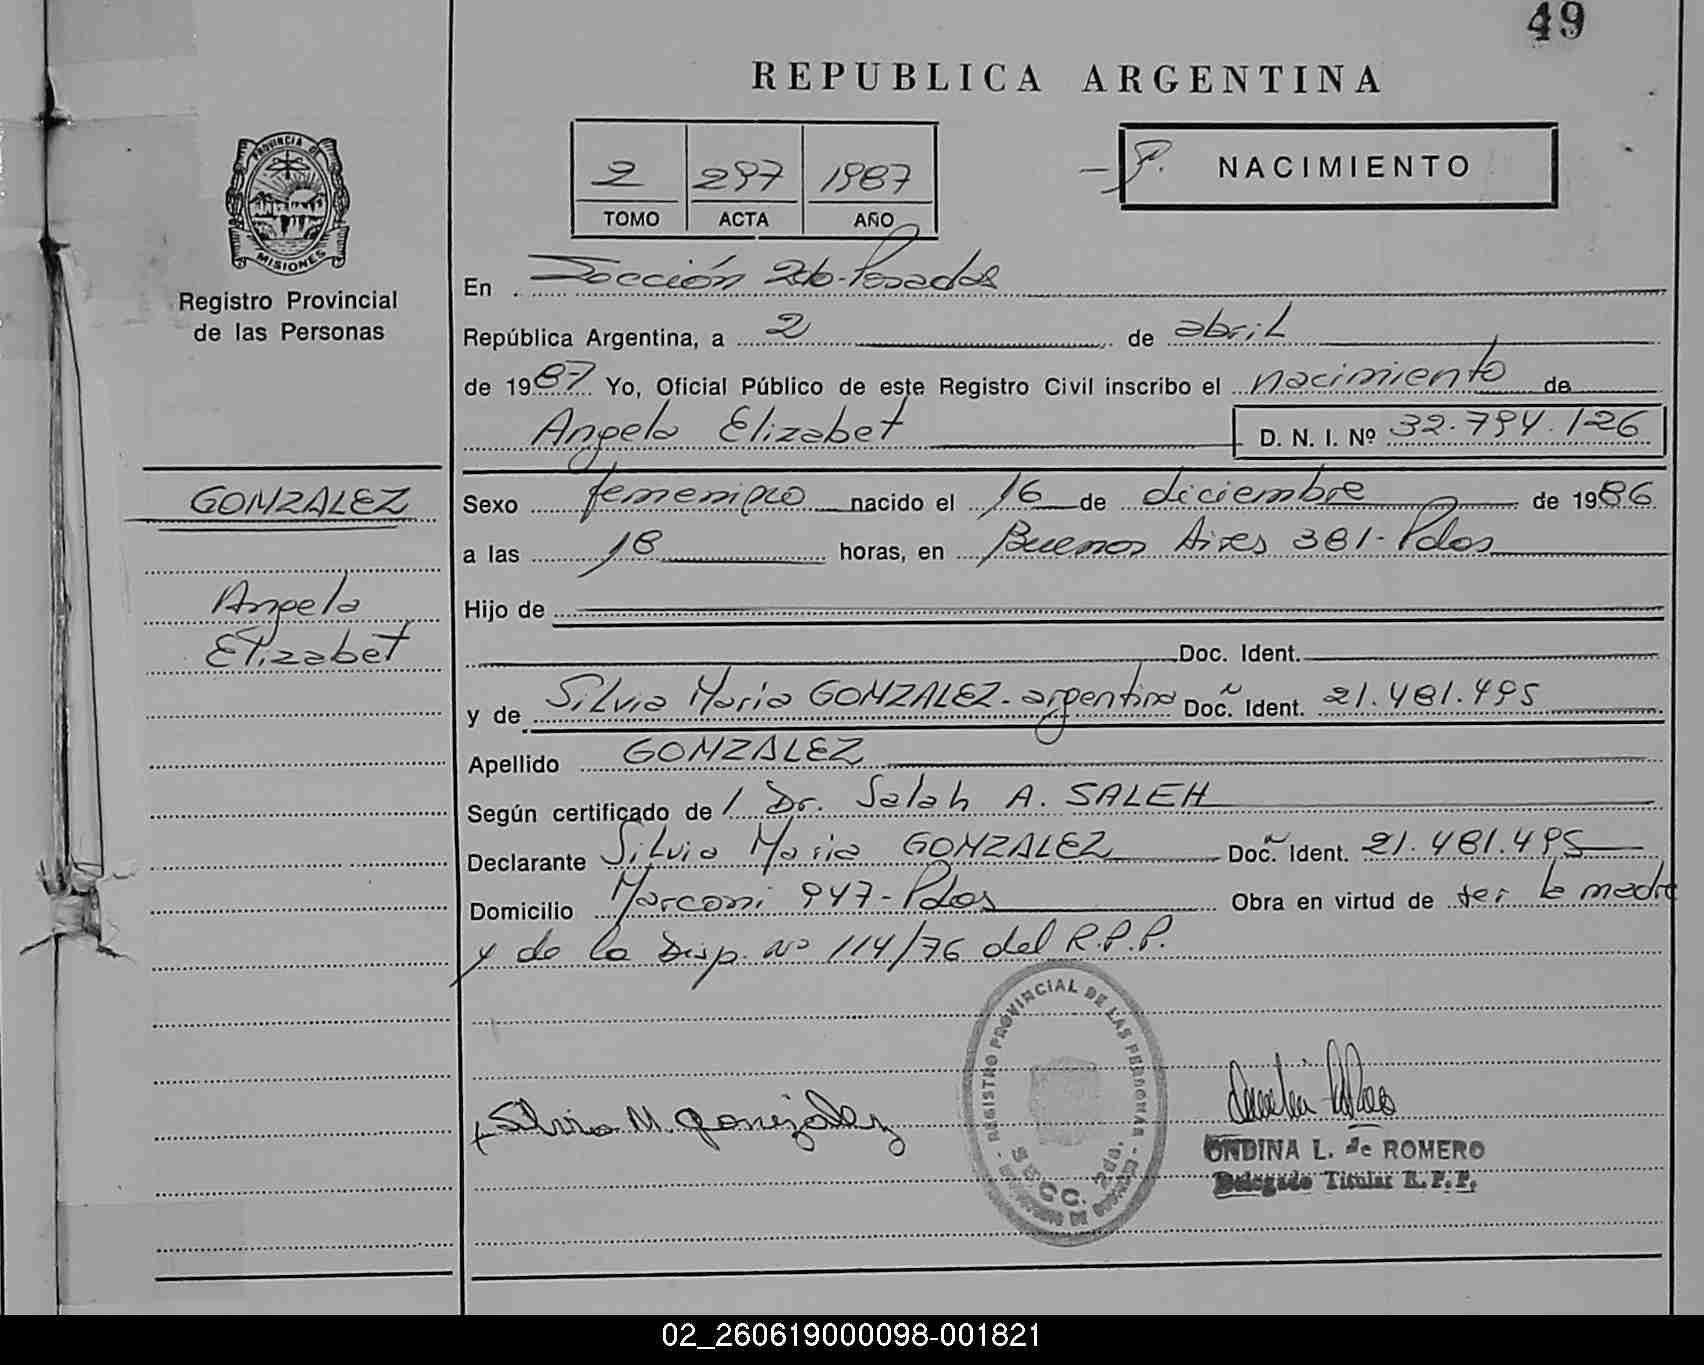 49
REPUBLICA ARGENTINA
PROVINCIA D
MISIONES
Registro Provincial
de las Personas
2 297 1987
TOMO ACTA AÑO
NACIMIENTO
En Sección 2da-Posadas
República Argentina, a 2 de abril
de 1987 Yo, Oficial Público de este Registro Civil inscribo el nacimiento de
Angela Elizabet D. N. I. Nº 32.794.126
GONZALEZ
Angela
Elizabet
Sexo femenino nacido el 16 de diciembre de 1986
a las 18 horas, en Buenos Aires 381-Pdas
Hijo de
Doc. Ident.
y de Silvia Maria GONZALEZ-argentina Doc. Ident. 21.481.495
Apellido GONZALEZ
Según certificado de Dr. Salah A. SALEH
Declarante Silvia Maria GONZALEZ Doc. Ident. 21.481.495
Domicilio Marconi 947-Pdas Obra en virtud de ser la madre
y de la Disp. Nº 114/76 del R.P.P.
REGISTRO PROVINCIAL DE LAS PERSONAS
SECC. 2da.
Silvia M. Gonzalez
ONDINA L. de ROMERO
Delegado Titular R.P.P.
02_260619000098-001821